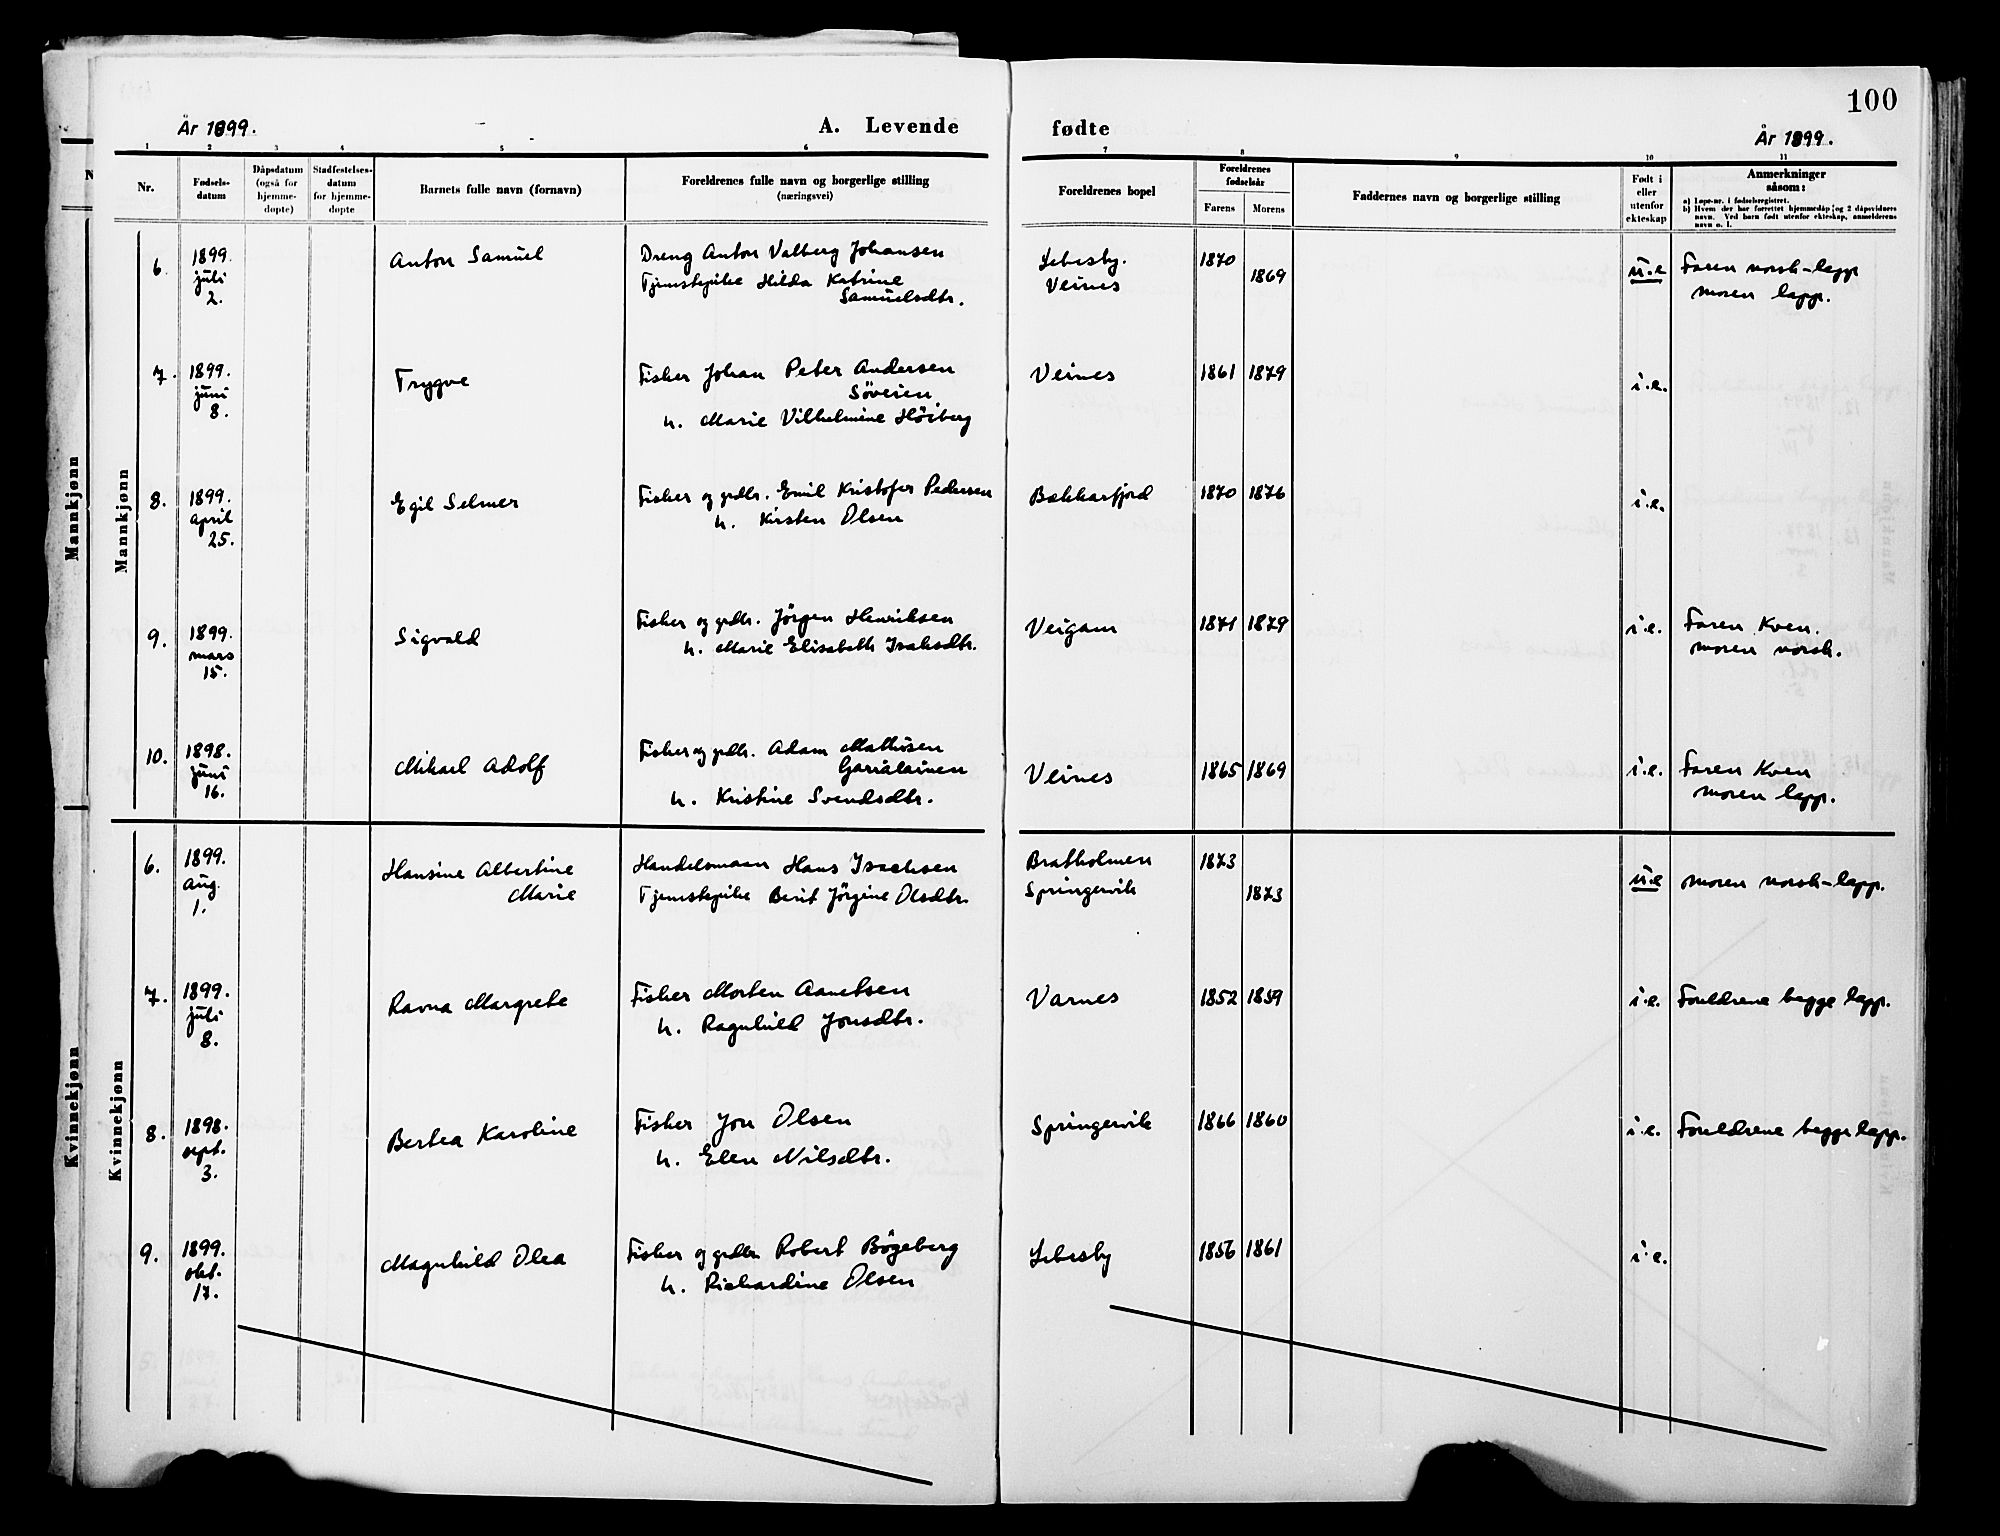 100
År 1899.
A. Levende fødte
År 1899.
1 2 3 4 5 6 7 8 9 10 11
Nr.
Fødsels-
datum
Dåpsdatum
(også for
hjemme-
døpte)
Stadfestelses-
datum
for hjemme-
døpte
Barnets fulle navn (fornavn)
Foreldrenes fulle navn og borgerlige stilling
(næringsvei)
Foreldrenes bopel
Foreldrenes
fødselsår
Farens Morens
Faddernes navn og borgerlige stilling
Født i
eller
utenfor
ekteskap
Anmerkninger
såsom:
a) Løpe-nr. i fødselsregistret.
b) Hvem der har forrettet hjemmedåp og 2 dåpsvidners
navn. Ved barn født utenfor ekteskap, anmelderens
navn o. l.
Mannkjønn
Mannkjønn
6. 1899. juli 2.
Anton Samuel
Dreng Anton Valberg Johansen
Tjenestepike Hilda Katrine
Samuelsdtr.
Lebesby.
Veines
1870 1869
u.e
Faren norsk-lapp
moren lapp.
7. 1899. juni 8.
Trygve
Fisker Johan Peter Andersen
Söveien
h. Marie Vilhelmine Höiberg
Veines
1861 1879
i.e.
8. 1899. april 25.
Egil Selmer
Fisker og grdbr. Emil Kristofer Pedersen
h. Kirsten Olsen
Bekkarfjord
1870 1876
i.e.
9. 1899. mars 15.
Sigvald
Fisker og grdbr. Jörgen Henriksen
h. Marie Elisabeth Isaksdtr.
Veigam
1871 1879
i.e.
Faren Kven.
moren norsk.
10. 1898. juni 16.
Mikael Adolf
Fisker og grdbr. Adam Mathisen
Garialainen
h. Kristine Svendsdtr.
Veines
1865 1869
i.e.
Faren Kven
moren lapp.
Kvinnekjønn
Kvinnekjønn
6. 1899. Aug. 1.
Hansine Albertine
Marie
Handelsmann Hans Isachsen
Tjenestepike Berit Jörgine Olsdtr.
Bratholmen
Springervik
1873 1873
u.e
moren norsk-lapp.
7. 1899. juli 8.
Ravna Margrete
Fisker Morten Aanetsen
h. Ragnhild Jonsdtr.
Varnes
1852 1859
i.e.
Foreldrene begge lapp.
8. 1898. sept. 3.
Bertea Karoline
Fisker Jon Olsen
h. Elen Nilsdtr.
Springervik
1866 1860
i.e.
Foreldrene begge lapp.
9. 1899. okt. 17.
Magnhild Olea
Fisker og grdbr Robert Bögeberg
h. Richardine Olsen
Lebesby
1856 1861
i.e.